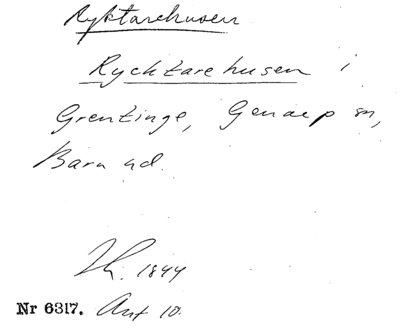 Ryktarehusen
Rycktarehusen i
Grentinge, Genarp sn,
Bara hd.
1844
Nr 6317. Ant 10.